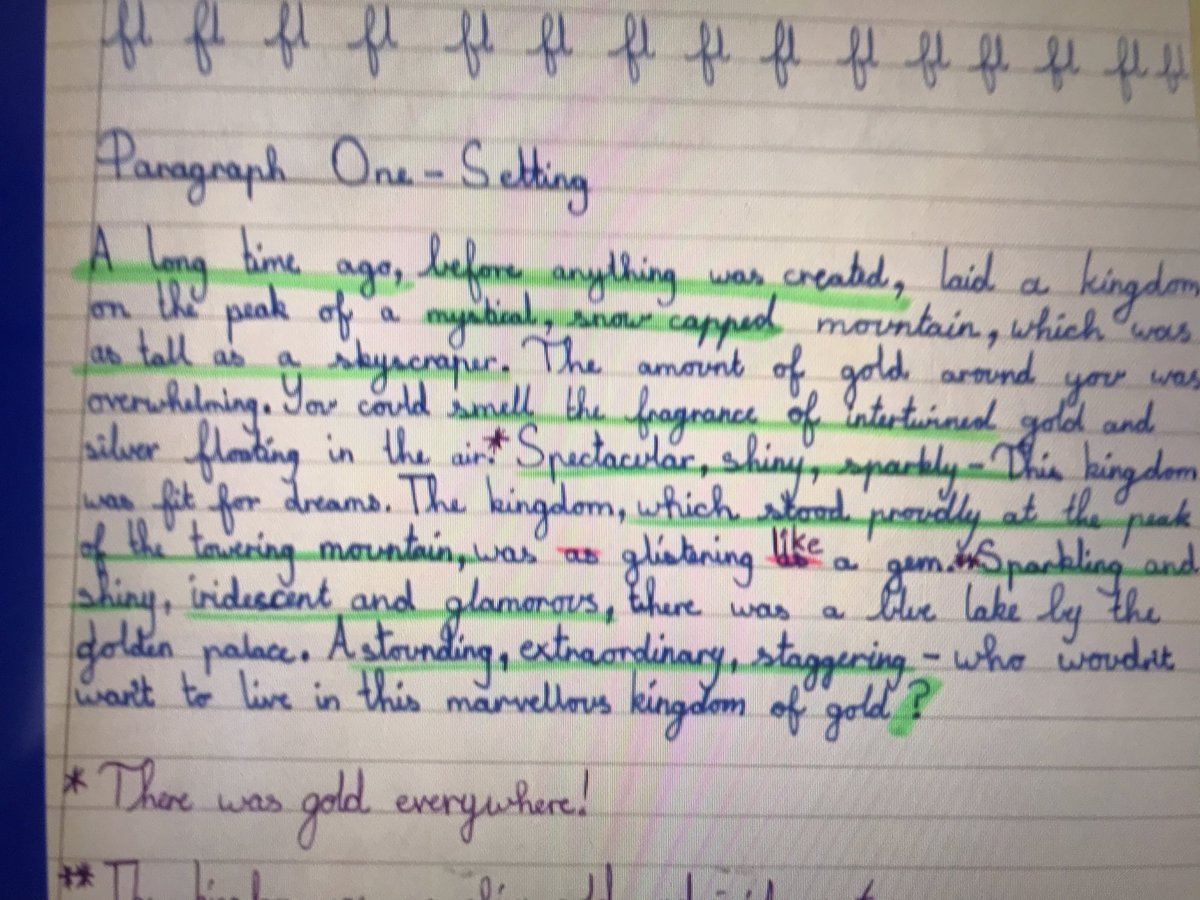 fl fl fl fl fl fl fl fl fl fl fl fl fl fl fl
Paragraph One - Setting
A long time ago, before anything was created, laid a kingdom
on the peak of a mystical, snow capped mountain, which was
as tall as a skyscraper. The amount of gold around you was
overwhelming. You could smell the fragrance of intertwined gold and
silver floating in the air.* Spectacular, shiny, sparkly - This kingdom
was fit for dreams. The kingdom, which stood proudly at the peak
of the towering mountain, was as glistening like a gem.** Sparkling and
shiny, iridescent and glamorous, there was a blue lake by the
golden palace. Astounding, extraordinary, staggering - who woudn't
want to live in this marvellous kingdom of gold?
* There was gold everywhere!
**